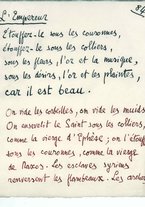 84
L'Empereur
Étouffez-le sous les couronnes,
étouffez-le sous les colliers,
sous les fleurs, l'or et la musique,
sous les désirs, l'or et les plaintes,
car il est beau.
On vide les corbeilles, on vide les muids
On ensevelit le Saint sous les colliers,
comme la vierge d'Éphèse; on l'étouffe
sous les couronnes, comme la vierge
de Paros. Les esclaves syriens
renversent les flambeaux. Les archers